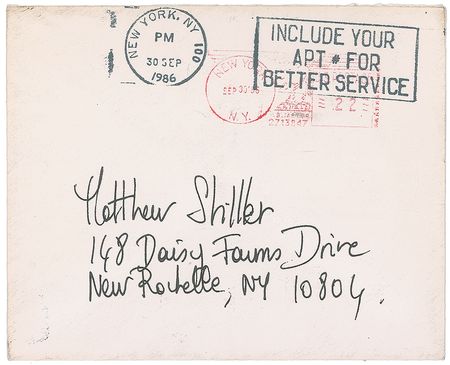 NEW YORK, NY 100
PM
30 SEP
1986
INCLUDE YOUR
APT # FOR
BETTER SERVICE
NEW YORK
SEP 30'86
N.Y.
22
Matthew Stiller
148 Daisy Farms Drive
New Rochelle, NY 10804.